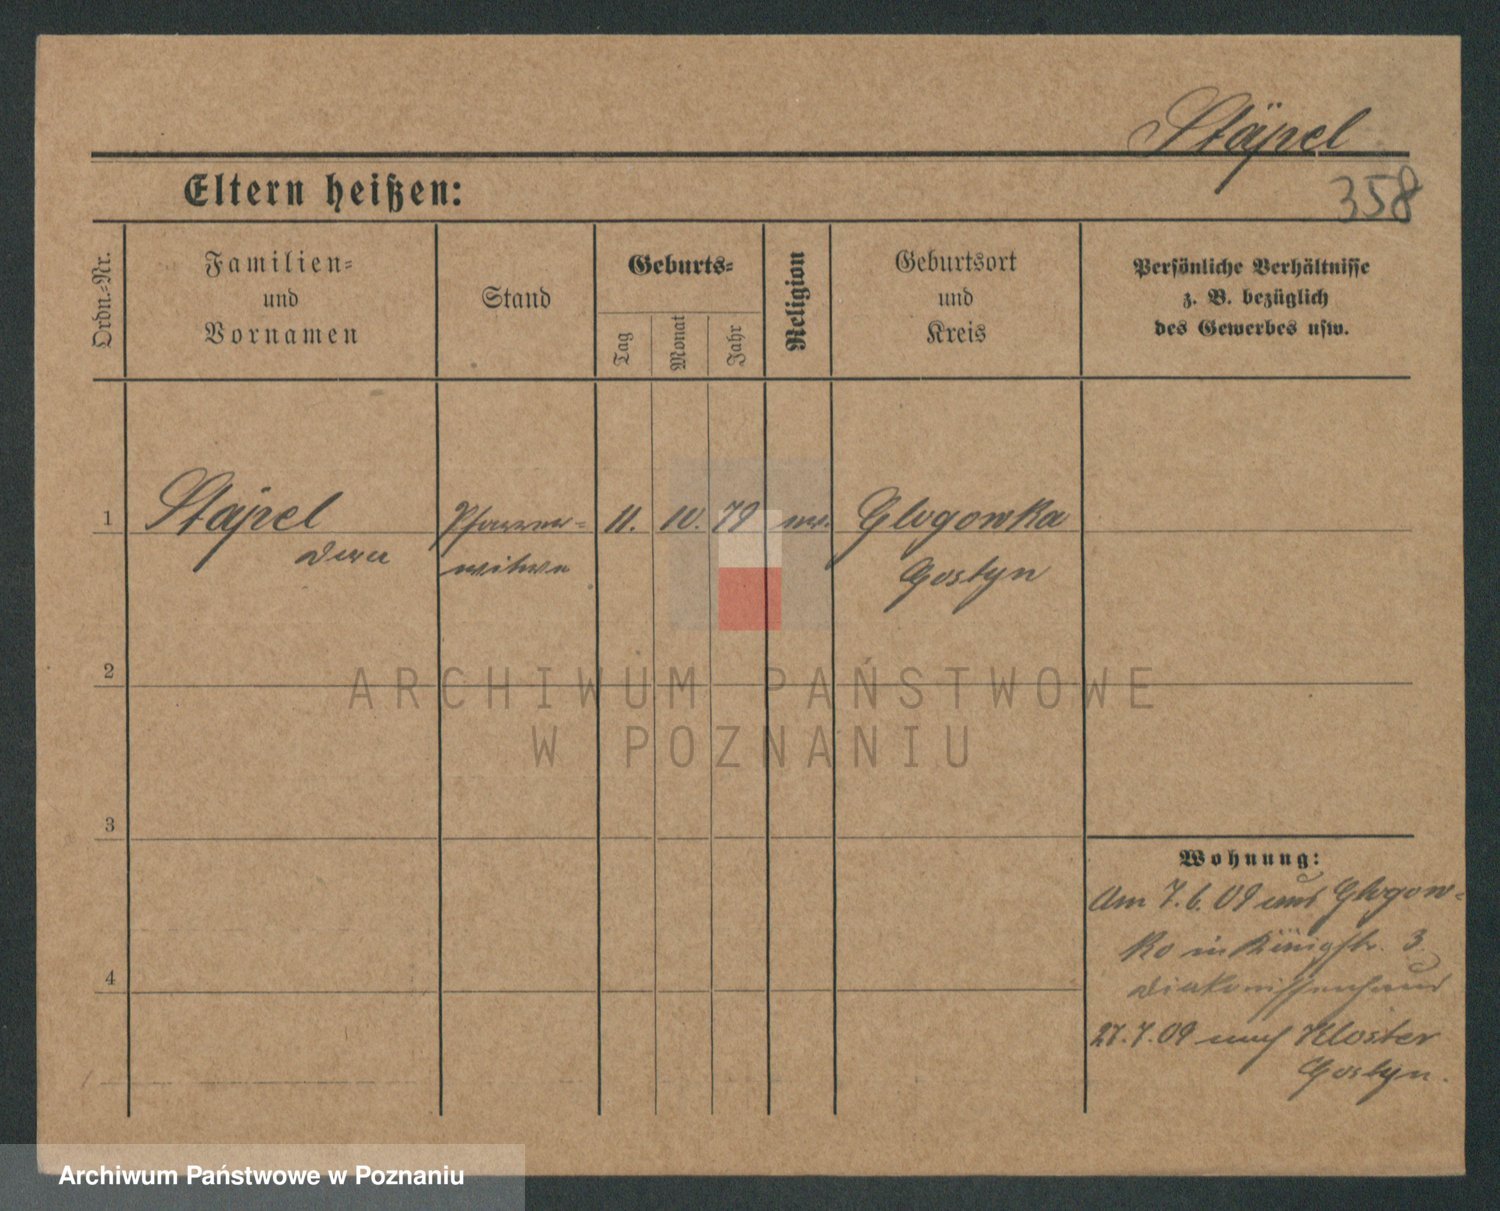 Stäpel
Eltern heißen:
358
Ordn.-Nr.
Familien-
und
Vornamen
Stand
Geburts-
Tag
Monat
Jahr
Religion
Geburtsort
und
Kreis
Persönliche Verhältnisse
z. B. bezüglich
des Gewerbes usw.
1
Stäpel
Pfarrer-
11.
10.
79
ev.
Glogowka
witwe
Gostyn
2
ARCHIWUM PAŃSTWOWE
W POZNANIU
3
Wohnung:
Am 7.6.09 aus Glogow-
ko in Königstr. 3
Diakonissenhaus
27.7.09 nach Kloster
Gostyn.
4
Archiwum Państwowe w Poznaniu